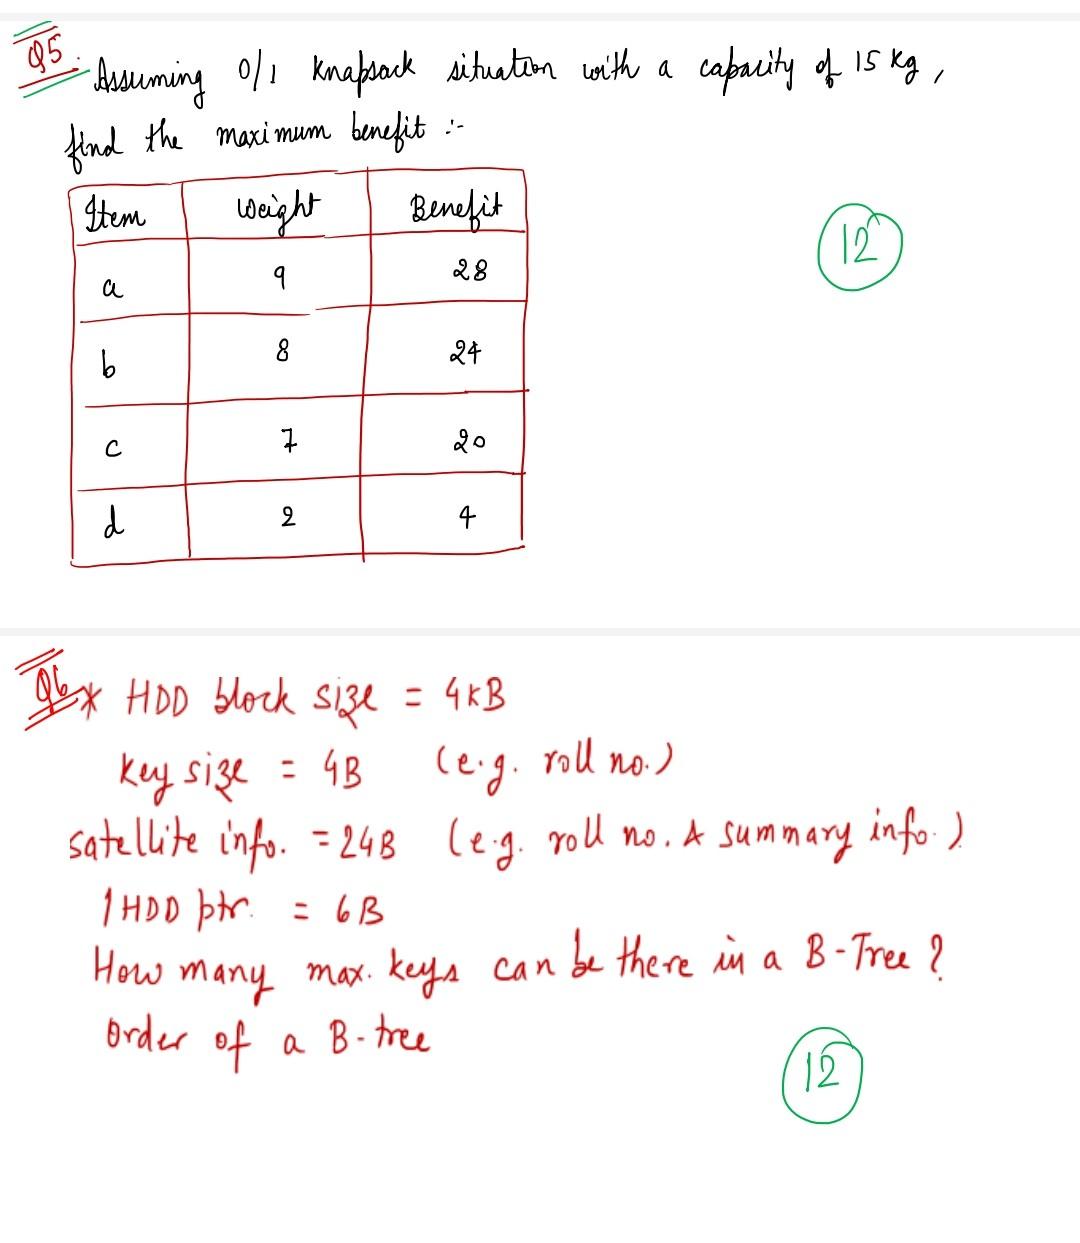 Q5. Assuming 0/1 Knapsack situation with a capacity of 15 kg,
find the maximum benefit :-
Item Weight Benefit
a 9 28
b 8 24
c 7 20
d 2 4
12
Q6 * HDD block size = 4KB
Key size = 4B (e.g. roll no.)
satellite info. = 24B (e.g. roll no. & summary info.)
1 HDD ptr. = 6B
How many max. keys can be there in a B-Tree ?
Order of a B-tree
12